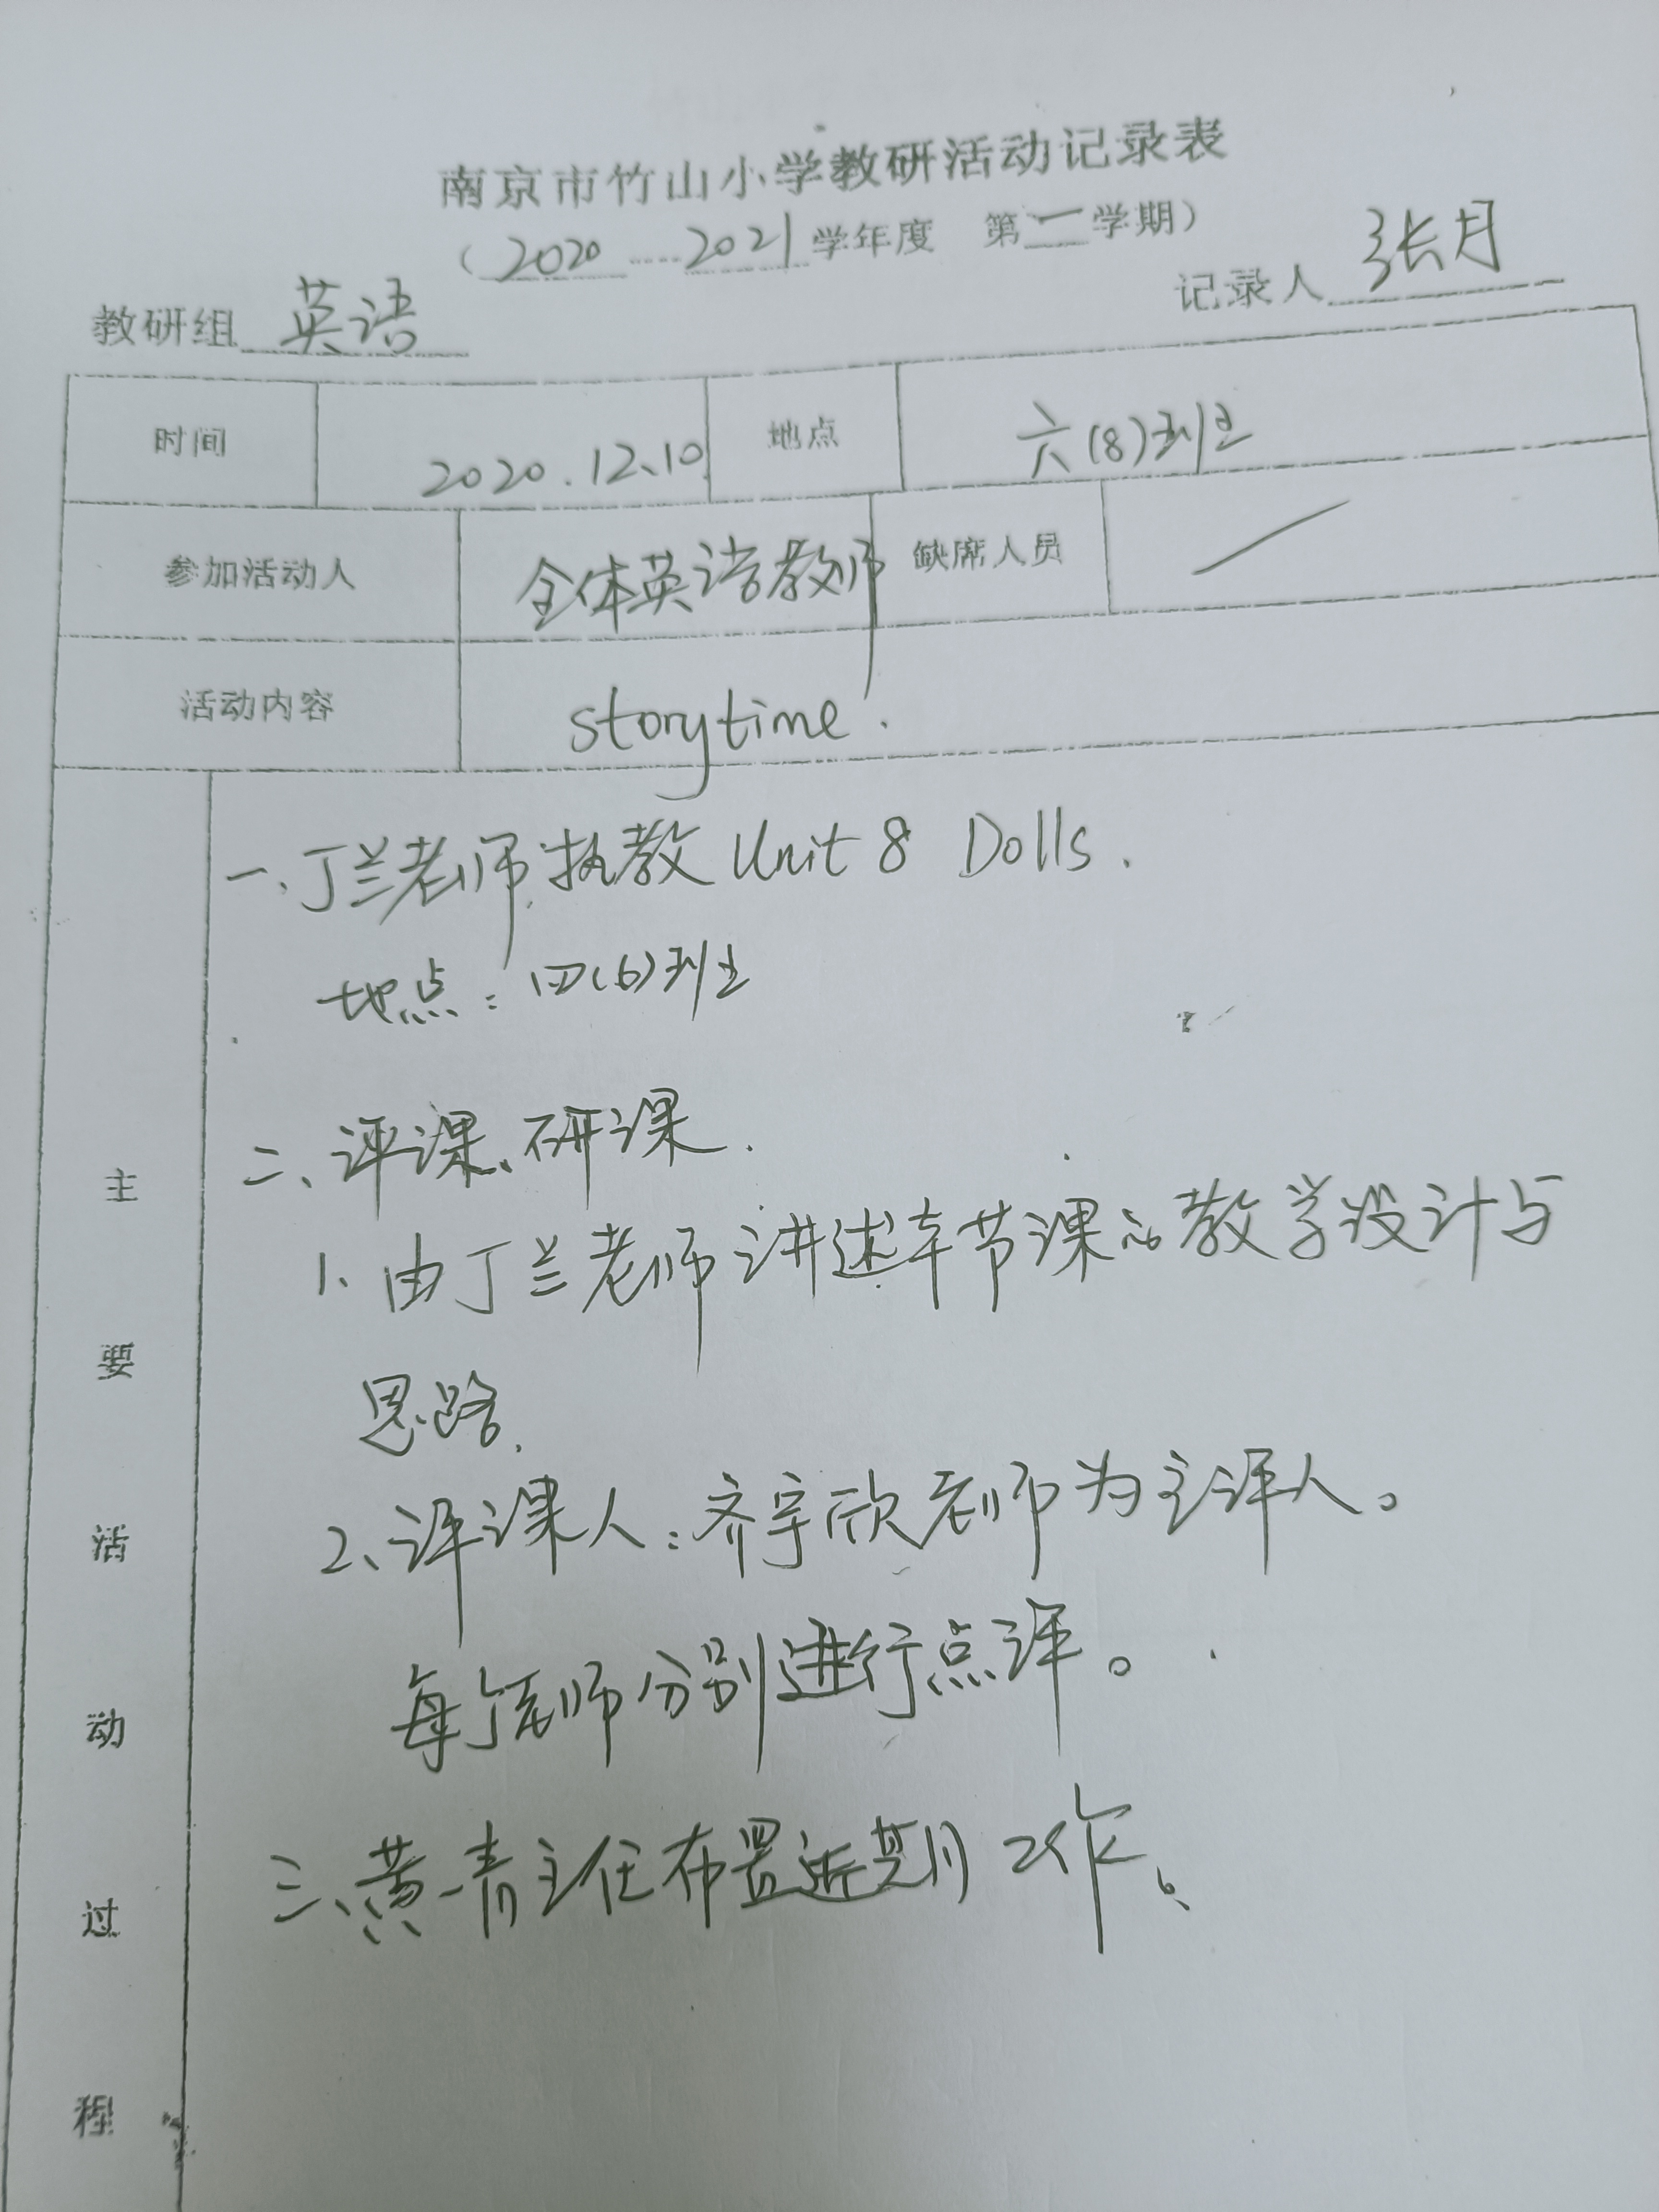 南京市竹山小学教研活动记录表
（2020——2021学年度 第一学期）
教研组 英语 记录人 张月
时间 2020.12.10 地点 六(8)班
参加活动人 全体英语教师 缺席人员 /
活动内容 storytime.
主要活动过程
一、丁兰老师执教 Unit 8 Dolls.
地点：四(6)班
二、评课、研课.
1、由丁兰老师讲述本节课的教学设计与
思路.
2、评课人：齐宇欣老师为主评人。
每个老师分别进行点评。
三、黄青主任布置近期工作。